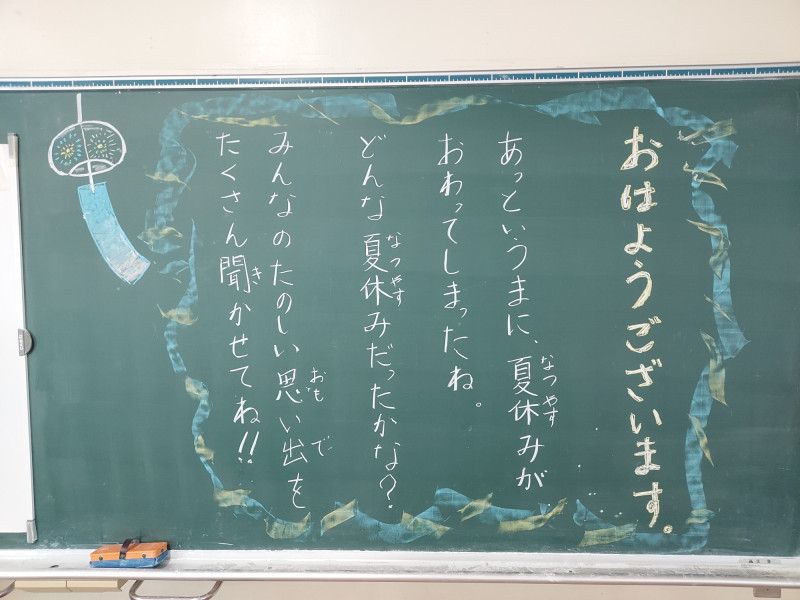 おはようございます。
あっというまに、夏休みが
おわってしまったね。
どんな夏休みだったかな?
みんなのたのしい思い出を
たくさん聞かせてね!!